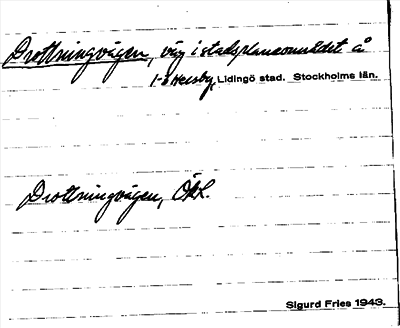 Drottningvägen, väg i stadsplaneområdet å
Lidingö stad. Stockholms län.
Drottningvägen, ÖKL.
Sigurd Fries 1943.